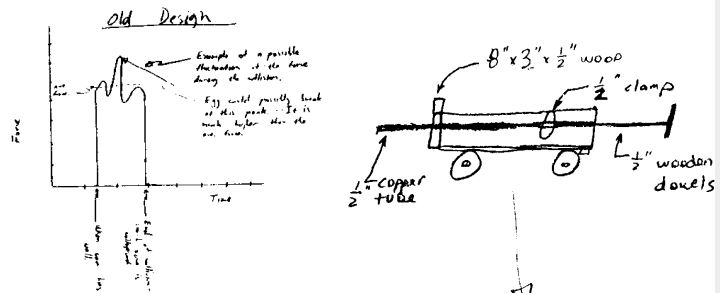 Old Design
Example of a possible
fluctuation of the force
during the collision.
Egg could possibly break
at this point. It is
much higher than the
ave. force.
Force
Time
8" x 3" x 1/2" wood
1/2" clamp
1/2" copper
tube
1/2" wooden
dowels